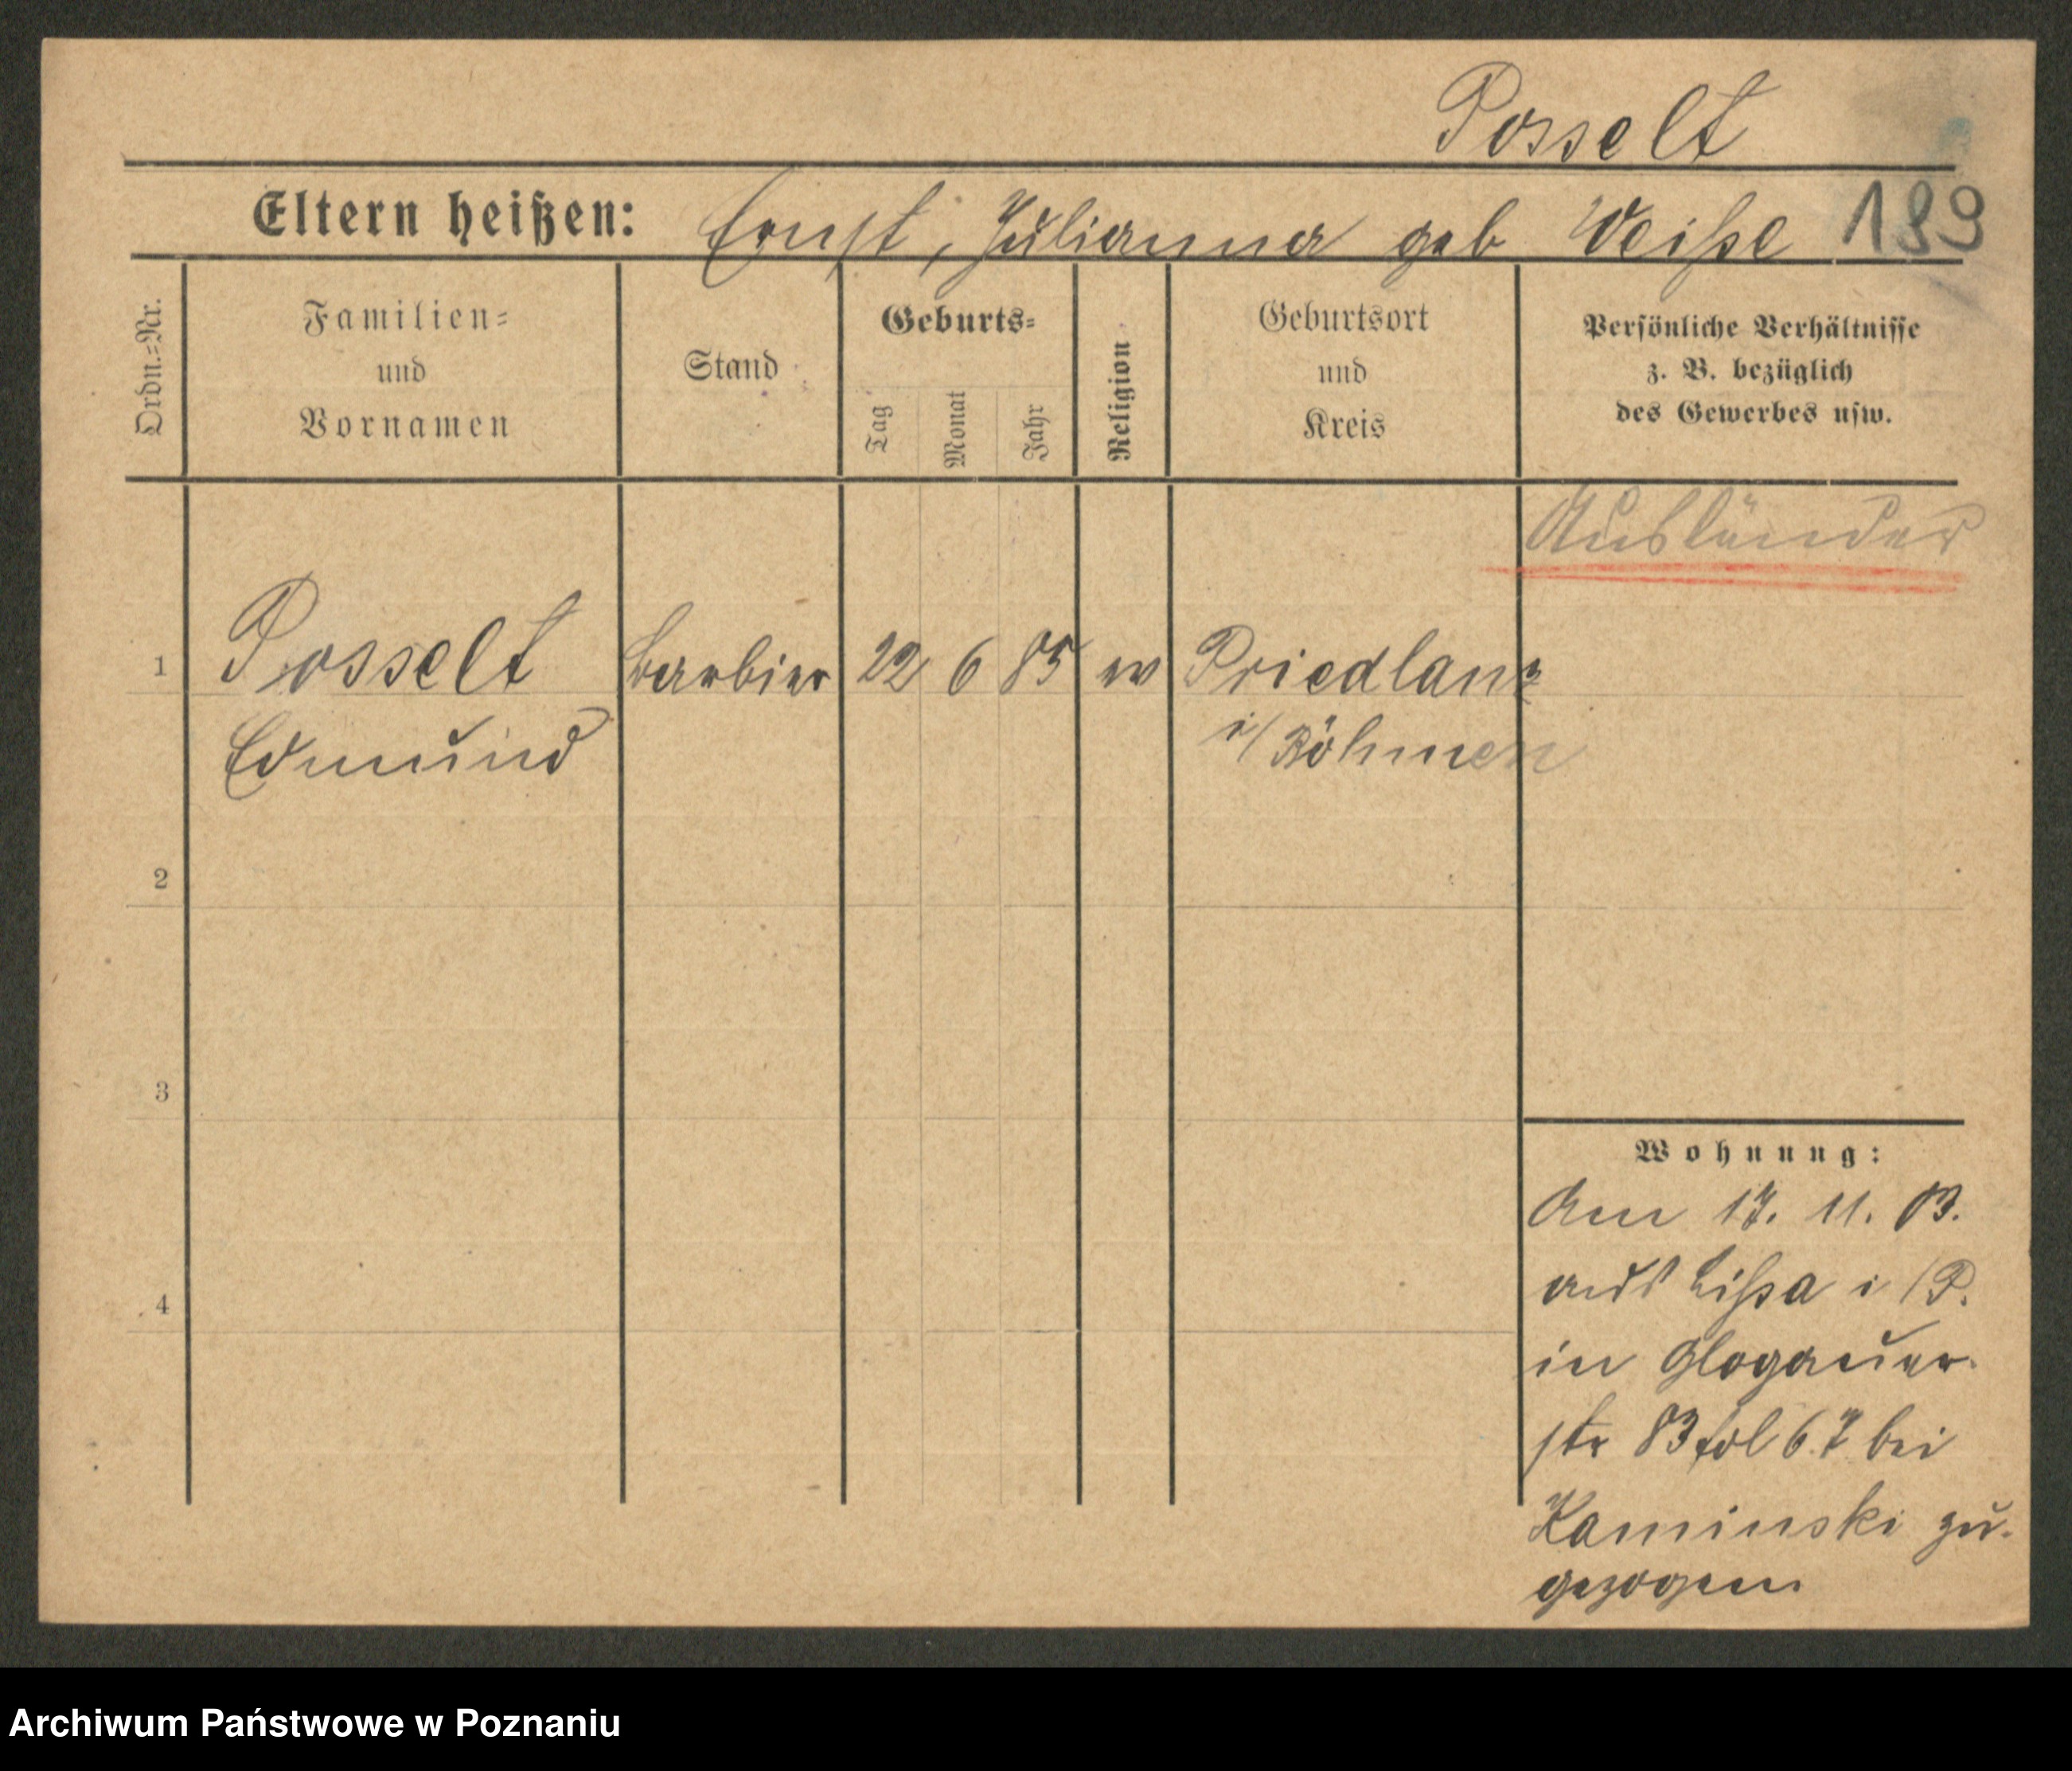 Posselt
Eltern heißen: Ernst, Julianna geb Weiße 199
Ordn.=Nr.
Familien=
und
Vornamen
Stand
Geburts=
Tag
Monat
Jahr
Religion
Geburtsort
und
Kreis
Persönliche Verhältnisse
z. B. bezüglich
des Gewerbes usw.
Ausländer
1 Posselt Barbier 22 6 85 ev Priedland
Edmund i/Böhmen
2
3
4
Wohnung:
Am 17. 11. 03.
aus Lißa i/P.
in Glogauer-
str 83 bei
Kaminski zu-
gezogen
Archiwum Państwowe w Poznaniu